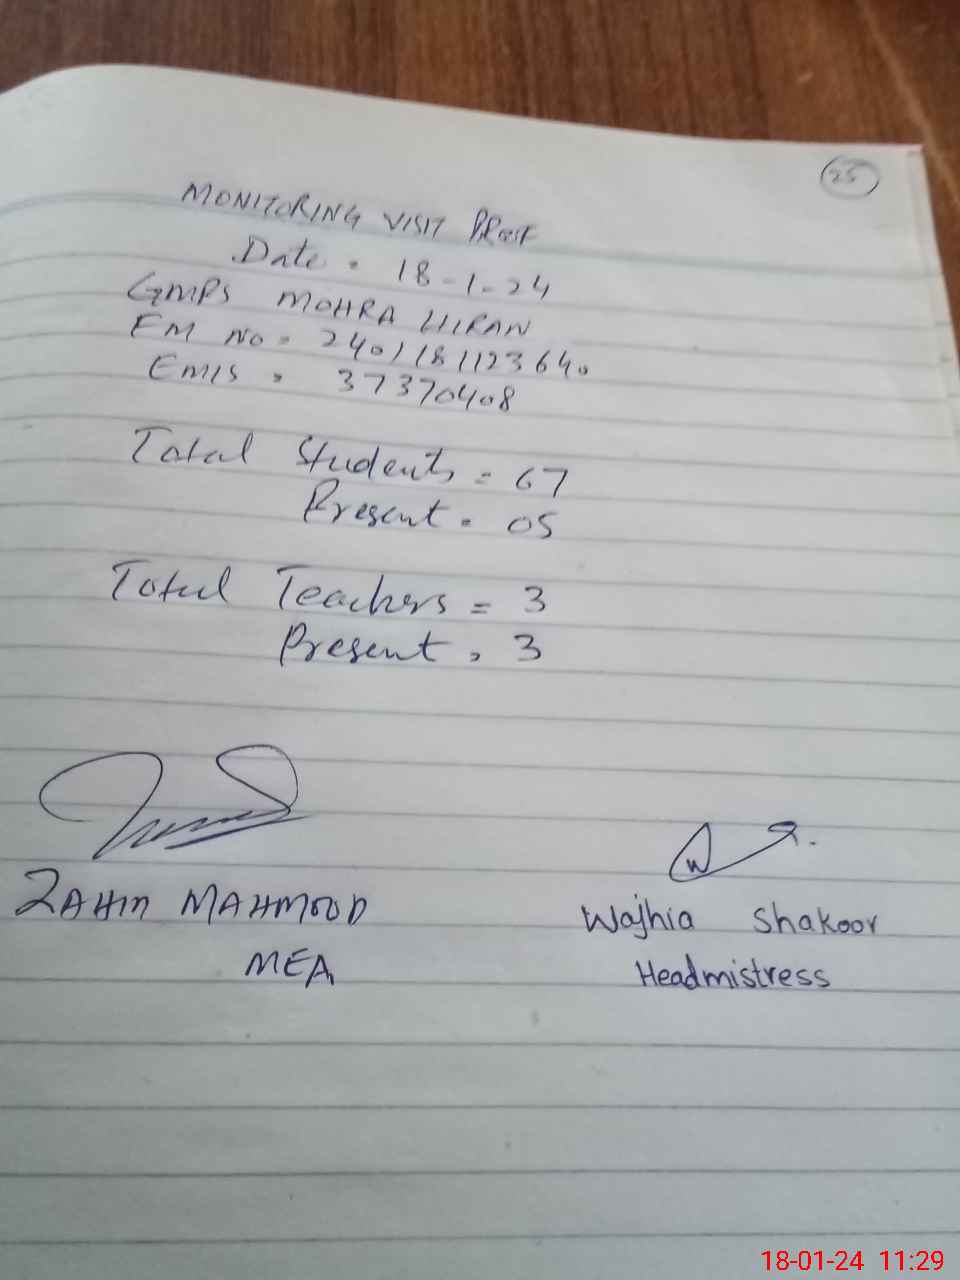 25
MONITORING VISIT PROOF
Date = 18-1-24
GMPS MOHRA HIRAN
EM NO = 2401181123640
EMIS = 37370408
Total Students = 67
Present = 05
Total Teachers = 3
Present = 3
MAHMOOD
Wajhia Shakoor
MEA
Headmistress
18-01-24 11:29